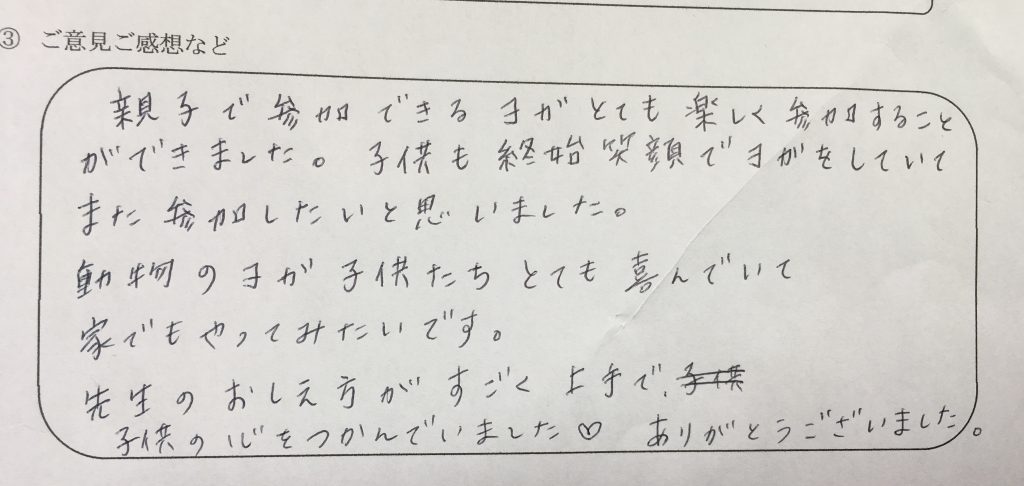 ③ ご意見ご感想など
親子で参加できるヨガとても楽しく参加すること
ができました。子供も終始笑顔でヨガをしていて
また参加したいと思いました。
動物のヨガ子供たちとても喜んでいて
家でもやってみたいです。
先生のおしえ方がすごく上手で、子供
子供の心をつかんでいました♡ ありがとうございました。